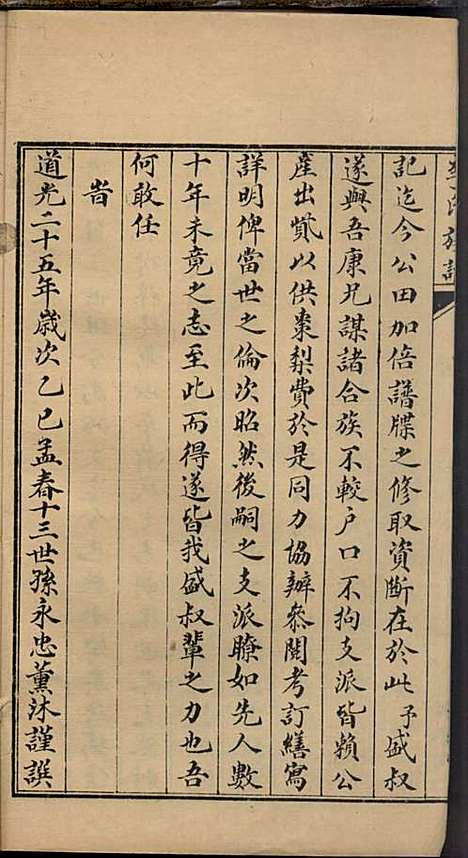 氏族譜
記迄今公田加倍譜牒之修取資斷在於此予盛叔
遂與吾康兄謀諸合族不較户口不拘支派皆賴公
產出貲以供棗梨費於是同力協辦叅閱考訂繕寫
詳明俾當世之倫次昭然後嗣之支派瞭如先人數
十年未竟之志至此而得遂皆我盛叔輩之力也吾
何敢任
旹
道光二十五年歲次乙巳孟春十三世孫永忠薰沐謹譔